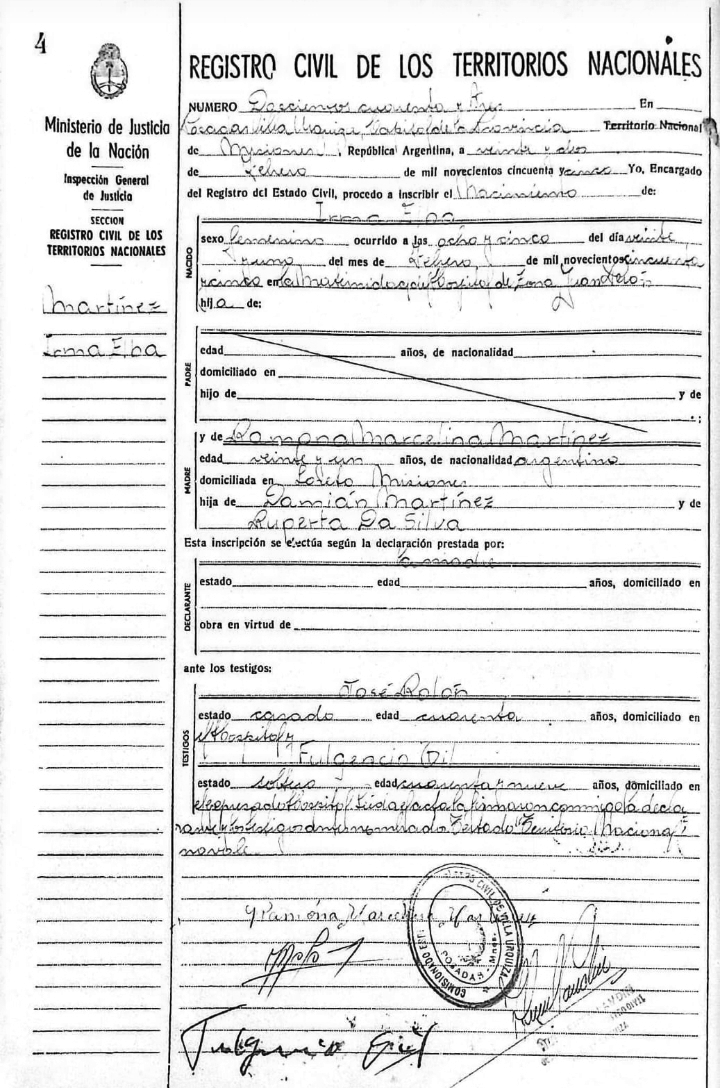 4
REGISTRO CIVIL DE LOS TERRITORIOS NACIONALES
Ministerio de Justicia
de la Nación
Inspección General
de Justicia
SECCION
REGISTRO CIVIL DE LOS
TERRITORIOS NACIONALES
Martínez
Irma Elba
NUMERO Doscientos cuarenta y tres En
Posadas Villa Urquiza, Capital de la Provincia Territorio Nacional
de Misiones República Argentina, a veinte y dos
de Febrero de mil novecientos cincuenta y cinco Yo, Encargado
del Registro del Estado Civil, procedo a inscribir el Nacimiento de:
Irma Elba
NACIDO
sexo femenino ocurrido a las ocho y cinco del día veinte
y uno del mes de Febrero de mil novecientos cincuenta
y cinco en la Maternidad Hospital de Zona Juan Perón
hija de:
PADRE
edad años, de nacionalidad
domiciliado en
hijo de y de
y de Ramona Marcelina Martínez
MADRE
edad veinte y un años, de nacionalidad argentina
domiciliada en Loreto Misiones
hija de Damián Martínez y de
Ruperta Da Silva
Esta inscripción se efectúa según la declaración prestada por:
la madre
DECLARANTE
estado edad años, domiciliado en
obra en virtud de
ante los testigos:
José Rolón
TESTIGOS
estado casado edad cuarenta años, domiciliado en
el Hospital y
Fulgencio Gil
estado soltero edad cuarenta y nueve años, domiciliado en
el Hospital Leida el acta la firmaron conmigo la decla
rante y los testigos Testado "Territorio Nacional"
no vale.
Ramona Marcelina Martinez
REGISTRO CIVIL DE VILLA URQUIZA
POSADAS
Fulgencio Gil